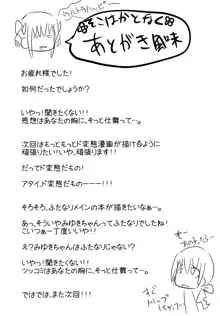 ウルトラハッピー
そこはかとなく
あとがき風味
お疲れ様でした!
如何だったでしょうか?
いやっ!聞きたくない!!
感想はあなたの胸に、そっと仕舞って…。
次回はもっともっとド変態漫画が描けるように
頑張りたい!いや、頑張ります!
だってド変態だもの!
アタイ、ド変態だものーーー!!!
そろそろ、ふたなりメインの本が描きたいなぁ~。
あっ、そういやみゆきちゃんってふたなりでしたね!
こいつぁー丁度いいや!!
え?みゆきちゃんはふたなりじゃない?
いやっ!聞きたくない!!
ツッコミはあなたの胸に、そっと仕舞って…。
ではでは、また次回!!!